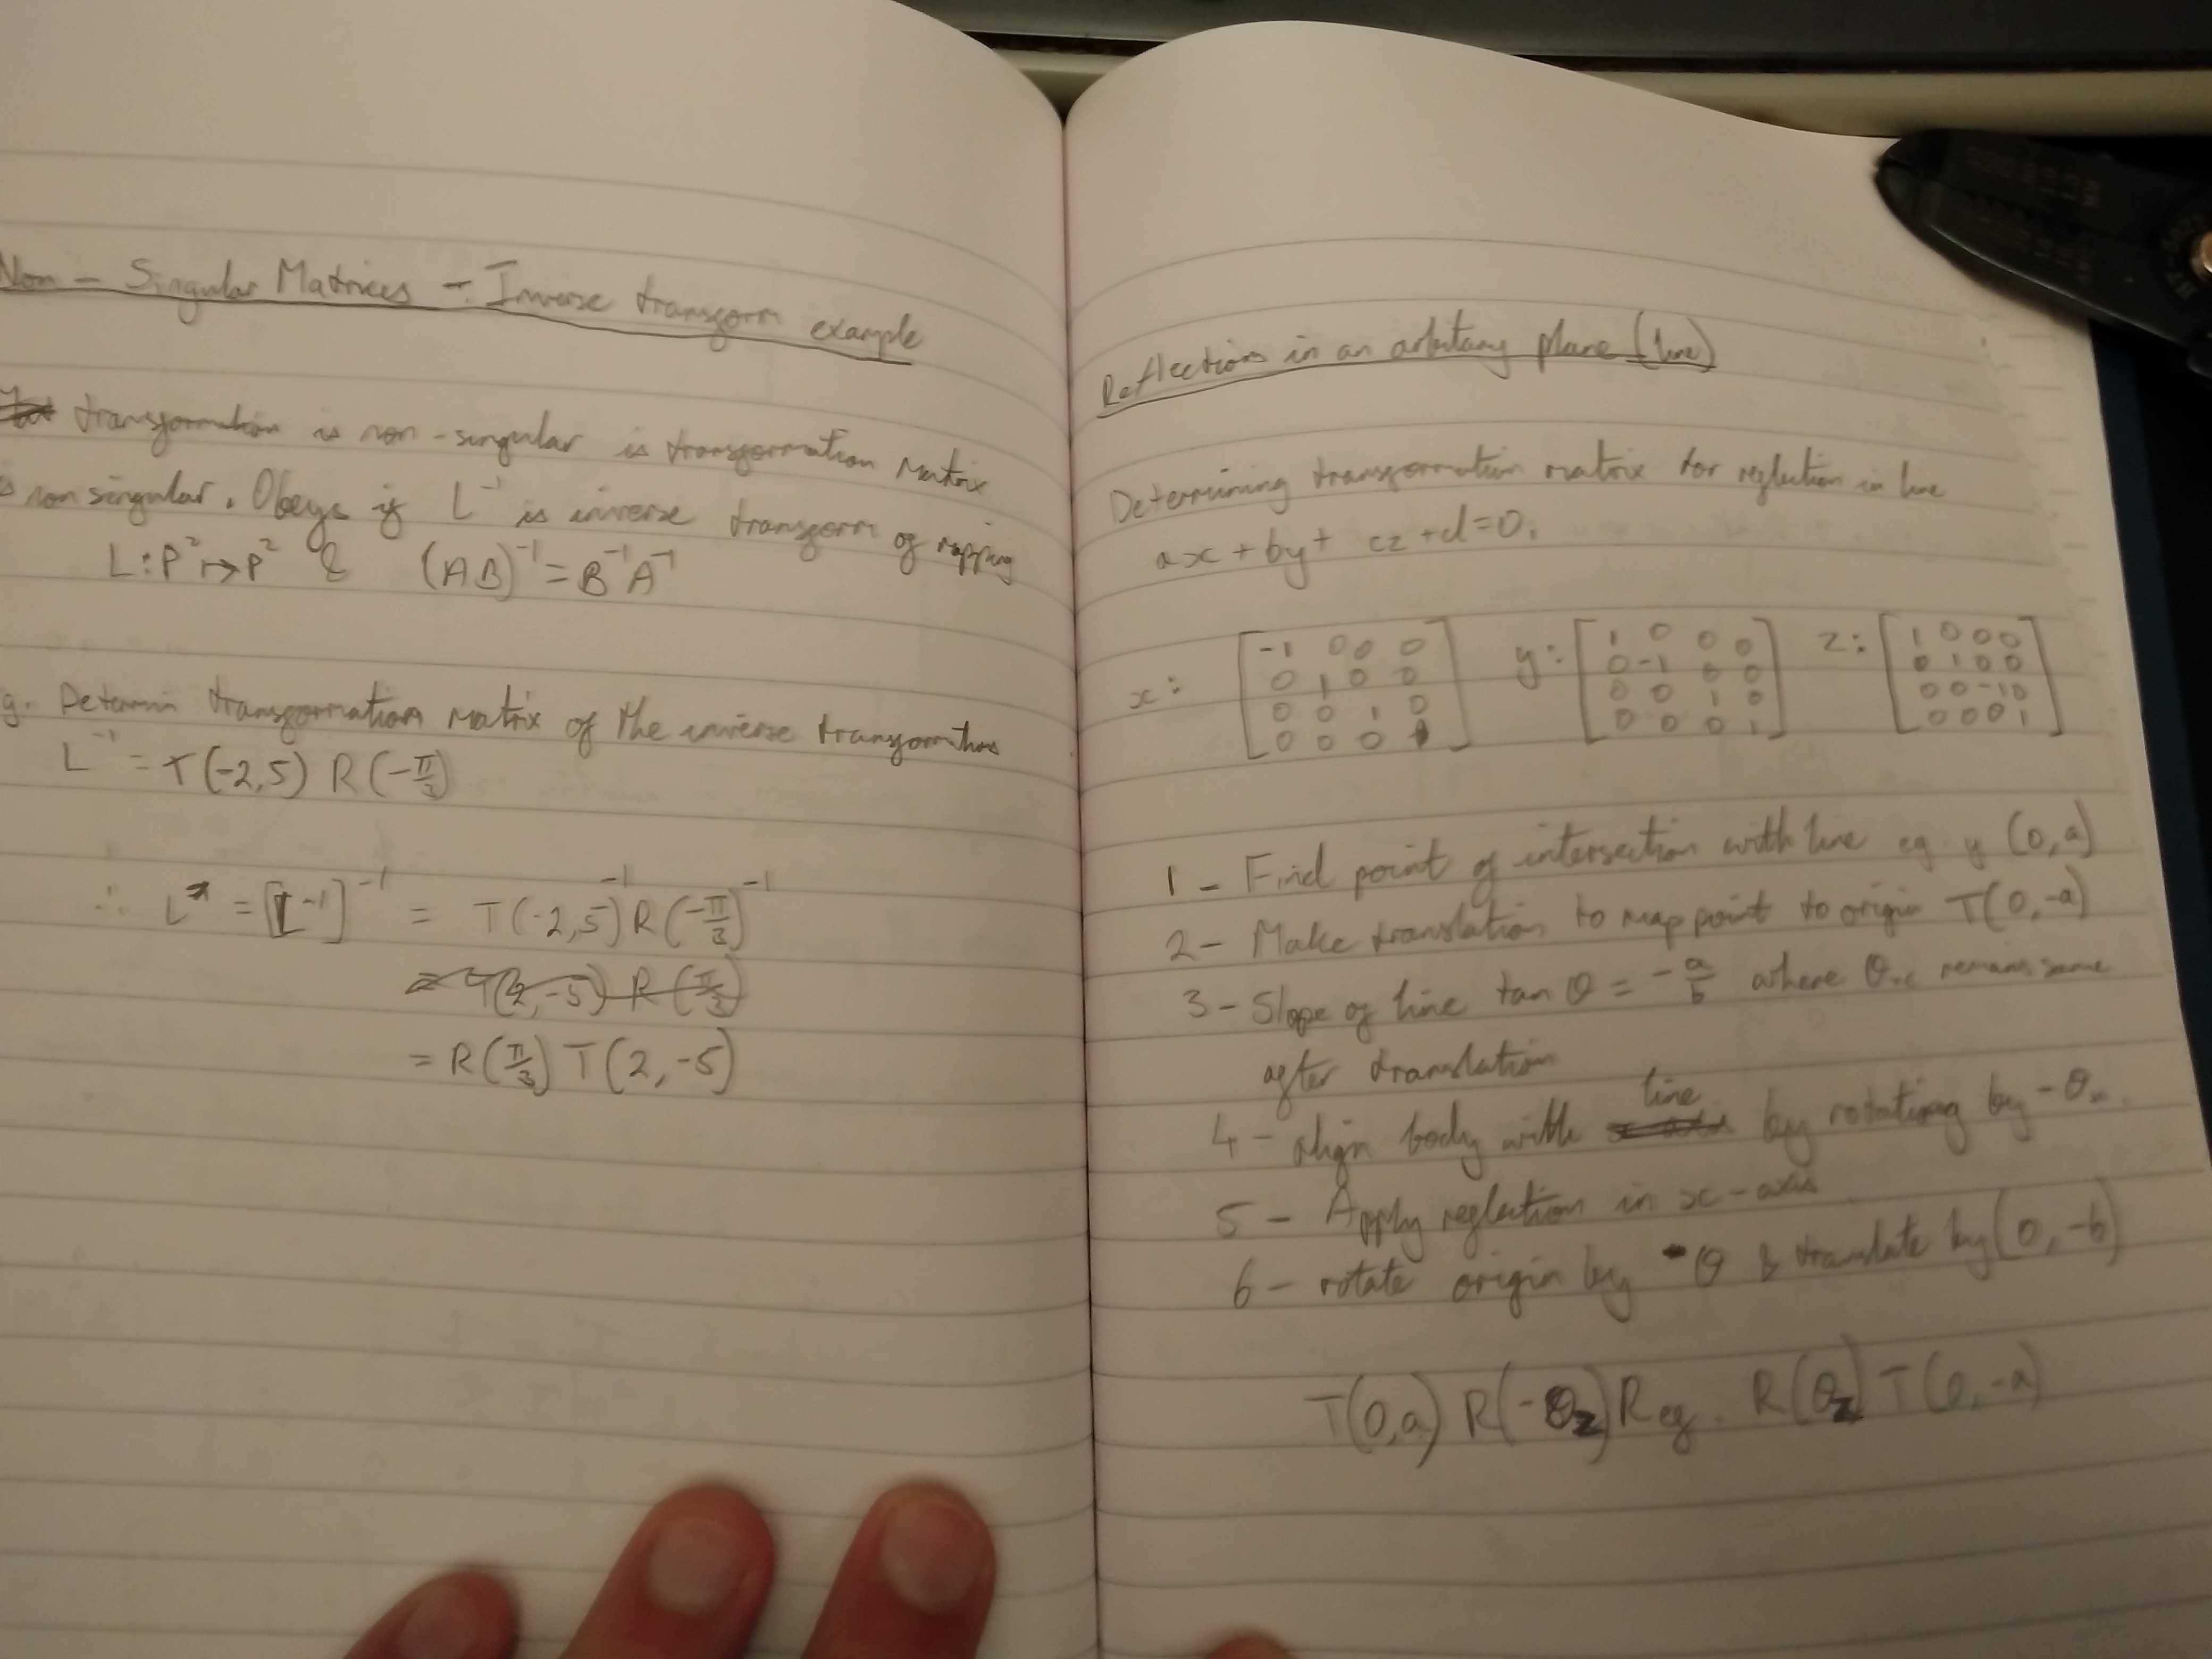 Non - Singular Matrices - Inverse transform example
transformation is non-singular is transformation matrix
is non singular. Obeys if L⁻¹ is inverse transform of mapping
L:P²↦P² & (AB)⁻¹=B⁻¹A⁻¹
g. Determin transformation matrix of the inverse transformation
L⁻¹ = T(-2,5) R(-π/3)
∴ L = [L⁻¹]⁻¹ = T(-2,5)⁻¹ R(-π/3)⁻¹
= T(2,-5) R(π/3)
= R(π/3) T(2,-5)
Reflection in an arbitary plane (line)
Determining transformation matrix for reflection in line
ax + by + cz + d = 0.
x: [-1 0 0 0
0 1 0 0
0 0 1 0
0 0 0 1]
y: [1 0 0 0
0 -1 0 0
0 0 1 0
0 0 0 1]
z: [1 0 0 0
0 1 0 0
0 0 -1 0
0 0 0 1]
1 - Find point of intersection with line eg y (0,a)
2 - Make translation to map point to origin T(0,-a)
3 - Slope of line tan θ = -a/b where remains same
after translation
4 - align body with line by rotating by -θ
5 - Apply reflection in x-axis
6 - rotate origin by θ & translate by (0,-b)
T(0,a) R(-θz) Reg. R(θz) T(0,-a)